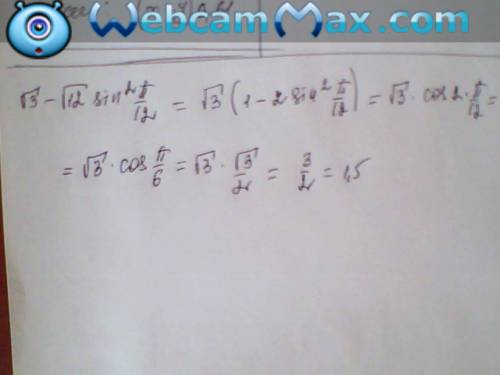 WebcamMax.com
√3 − √12 sin² π/12 = √3 (1 − 2 sin² π/12) = √3 · cos 2 · π/12 =
= √3 · cos π/6 = √3 · √3/2 = 3/2 = 1,5